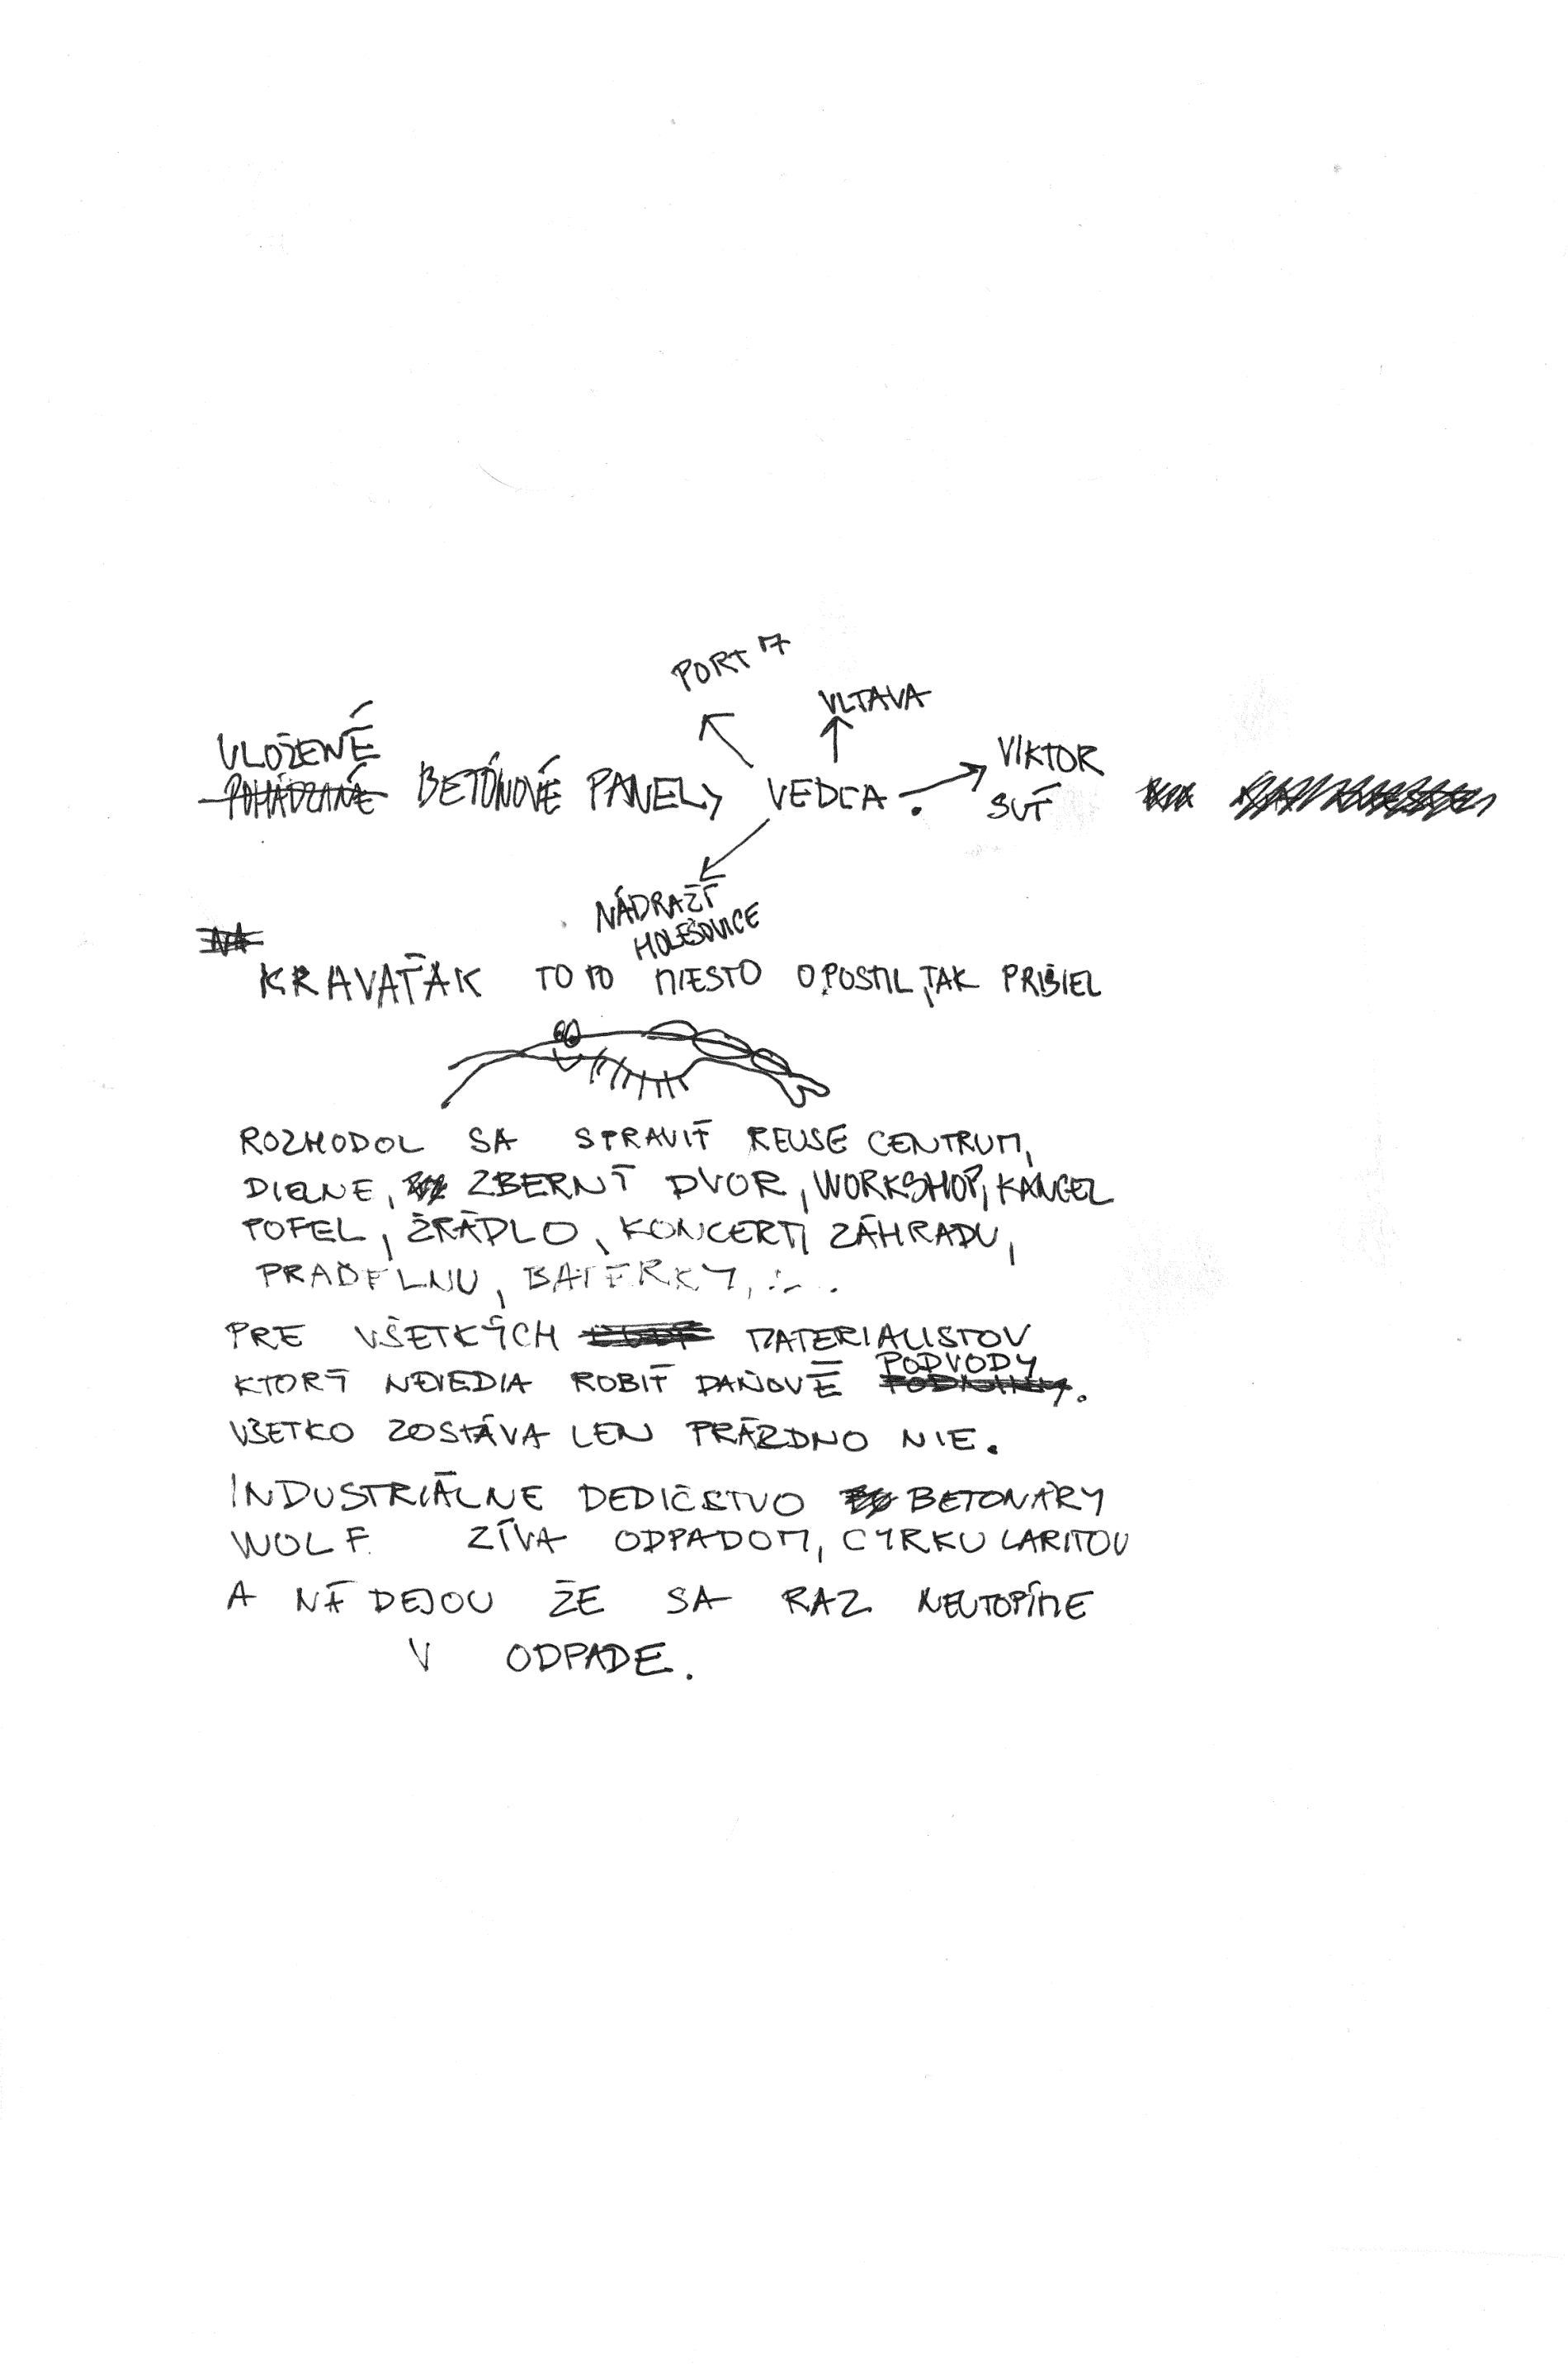 PORT 7
VLTAVA
VLOŽENÉ
POHÁDZANÉ BETÓNOVÉ PANELY VEDĽA.
VIKTOR
SUŤ
NÁDRAŽÍ
HOLEŠOVICE
KRAVAŤÁK TOTO MIESTO OPOSTIL, TAK PRIŠIEL
ROZHODOL SA SPRAVIŤ REUSE CENTRUM,
DIELNE, ZBERNÝ DVOR, WORKSHOP, KANCEL
POFEL, ŽRÁDLO, KONCERTY ZÁHRADU,
PRADELNU, BATERKY, ...
PRE VŠETKÝCH MATERIALISTOV
KTORÝ NEVEDIA ROBIŤ DAŇOVÉ PODVODY.
VŠETKO ZOSTÁVA LEN PRÁZDNO NIE.
INDUSTRIÁLNE DEDIČSTVO BETONÁRY
WOLF ZÍVA ODPADOM, CYRKULARITOU
A NÁDEJOU ŽE SA RAZ NEUTOPÍME
V ODPADE.